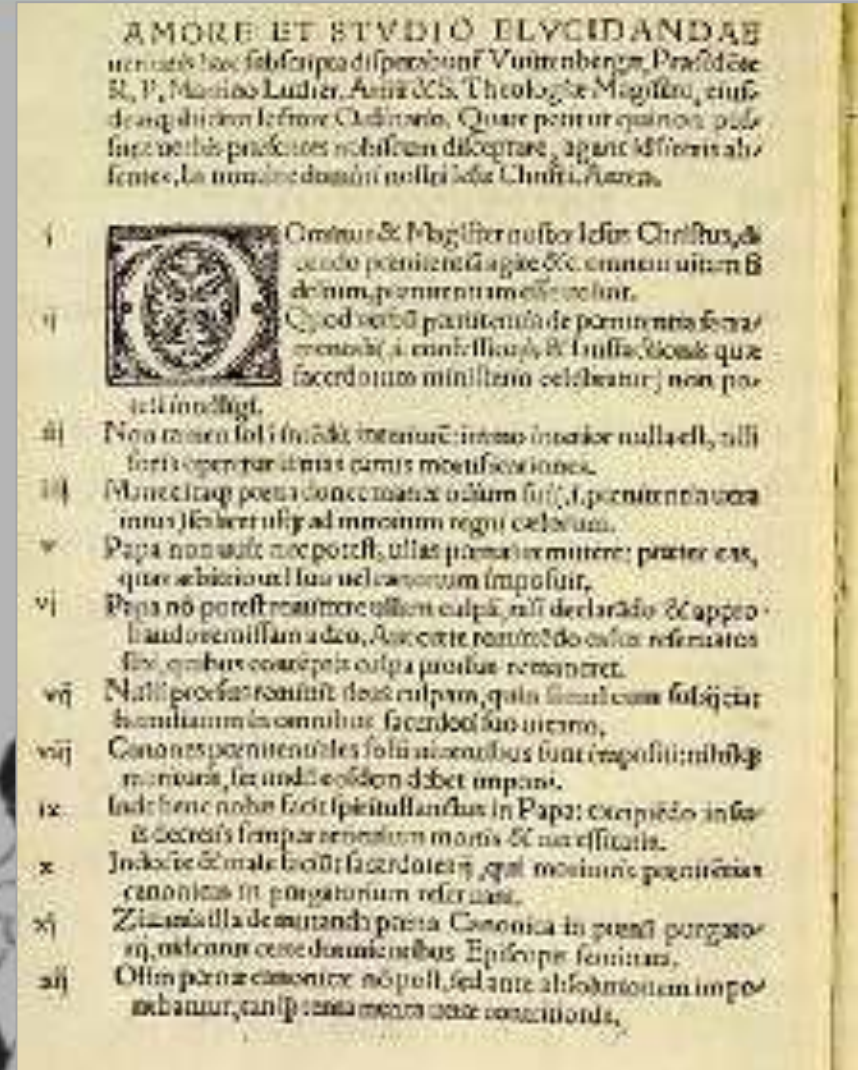 AMORE ET STVDIO ELVCIDANDAE
ueritatis hæc subscripta disputabunt Vuittenbergæ, Præsidēte
R. P. Martino Luther, Artiū & S. Theologiæ Magistro, eius-
dem ibidem lectore Ordinario. Quare petit ut qui non pos-
sunt uerbis præsentes nobiscum disceptare, agant id literis ab-
sentes. In nomine domini nostri Iesu Christi. Amen.
i Ominus & Magister noster Iesus Christus, di
cendo pœnitentiā agite &c. omnem uitam fi
delium, pœnitentiam esse uoluit.
ij Quod uerbū de pœnitentia sacra-
mentali (.i. confessionis & satisfactionis quæ
sacerdotum ministerio celebratur) non po-
test intelligi.
iij Non tamen solā intēdit interiorē: immo interior nulla est, nisi
foris operetur uarias carnis mortificationes.
iiij Manet itaq; pœna donec manet odium sui (.i. pœnitentia uera
intus) scilicet usq; ad introitum regni cælorum.
v Papa non uult nec potest, ullas pœnas remittere: præter eas,
quas arbitrio uel suo uel canonum imposuit.
vj Papa nō potest remittere ullam culpā, nisi declarādo & appro-
bando remissam a deo. Aut certe remittēdo casus reseruatos
sibi, quibus contēptis culpa prorsus remaneret.
vij Nulli prorsus remittit deus culpam, quin simul eum subijciat
humiliatum in omnibus sacerdoti suo uicario.
viij Canones pœnitentiales solū uiuentibus sunt impositi: nihilq;
morituris, secundū eosdem debet imponi.
ix Inde bene nobis facit spiritussanctus in Papa: excipiēdo in su-
is decretis semper articulum mortis & necessitatis.
x Indocte & male faciūt sacerdotes ij, qui morituris pœnitētias
canonicas in purgatorium reseruant.
xj Zizania illa de mutanda pœna Canonica in pœnā purgato-
rij, uidentur certe dormientibus Episcopis seminata.
xij Olim pœnæ canonicæ nō post, sed ante absolutionem impo-
nebantur, tanq̄ tentamenta ueræ contritionis.